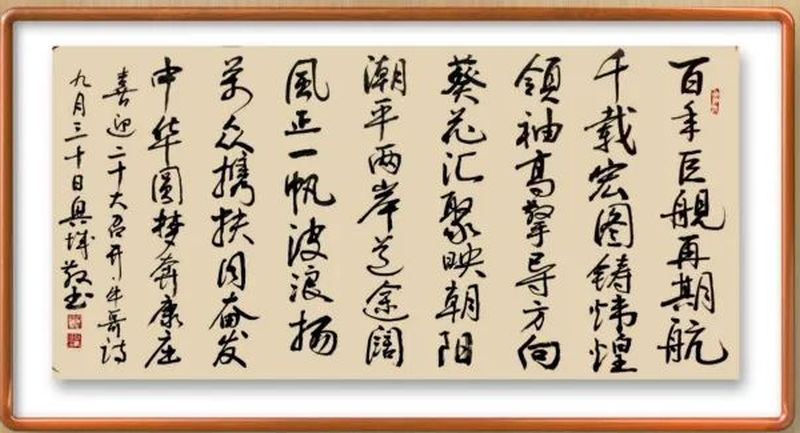 百年巨舰再期航
千载宏图铸炜煌
领袖高擎导方向
葵花汇聚映朝阳
潮平两岸万途阔
風正一帆波浪扬
万众携扶同奋发
中华圆梦奔康庄
喜迎二十大召开牛哥诗
九月三十日兴城敬书